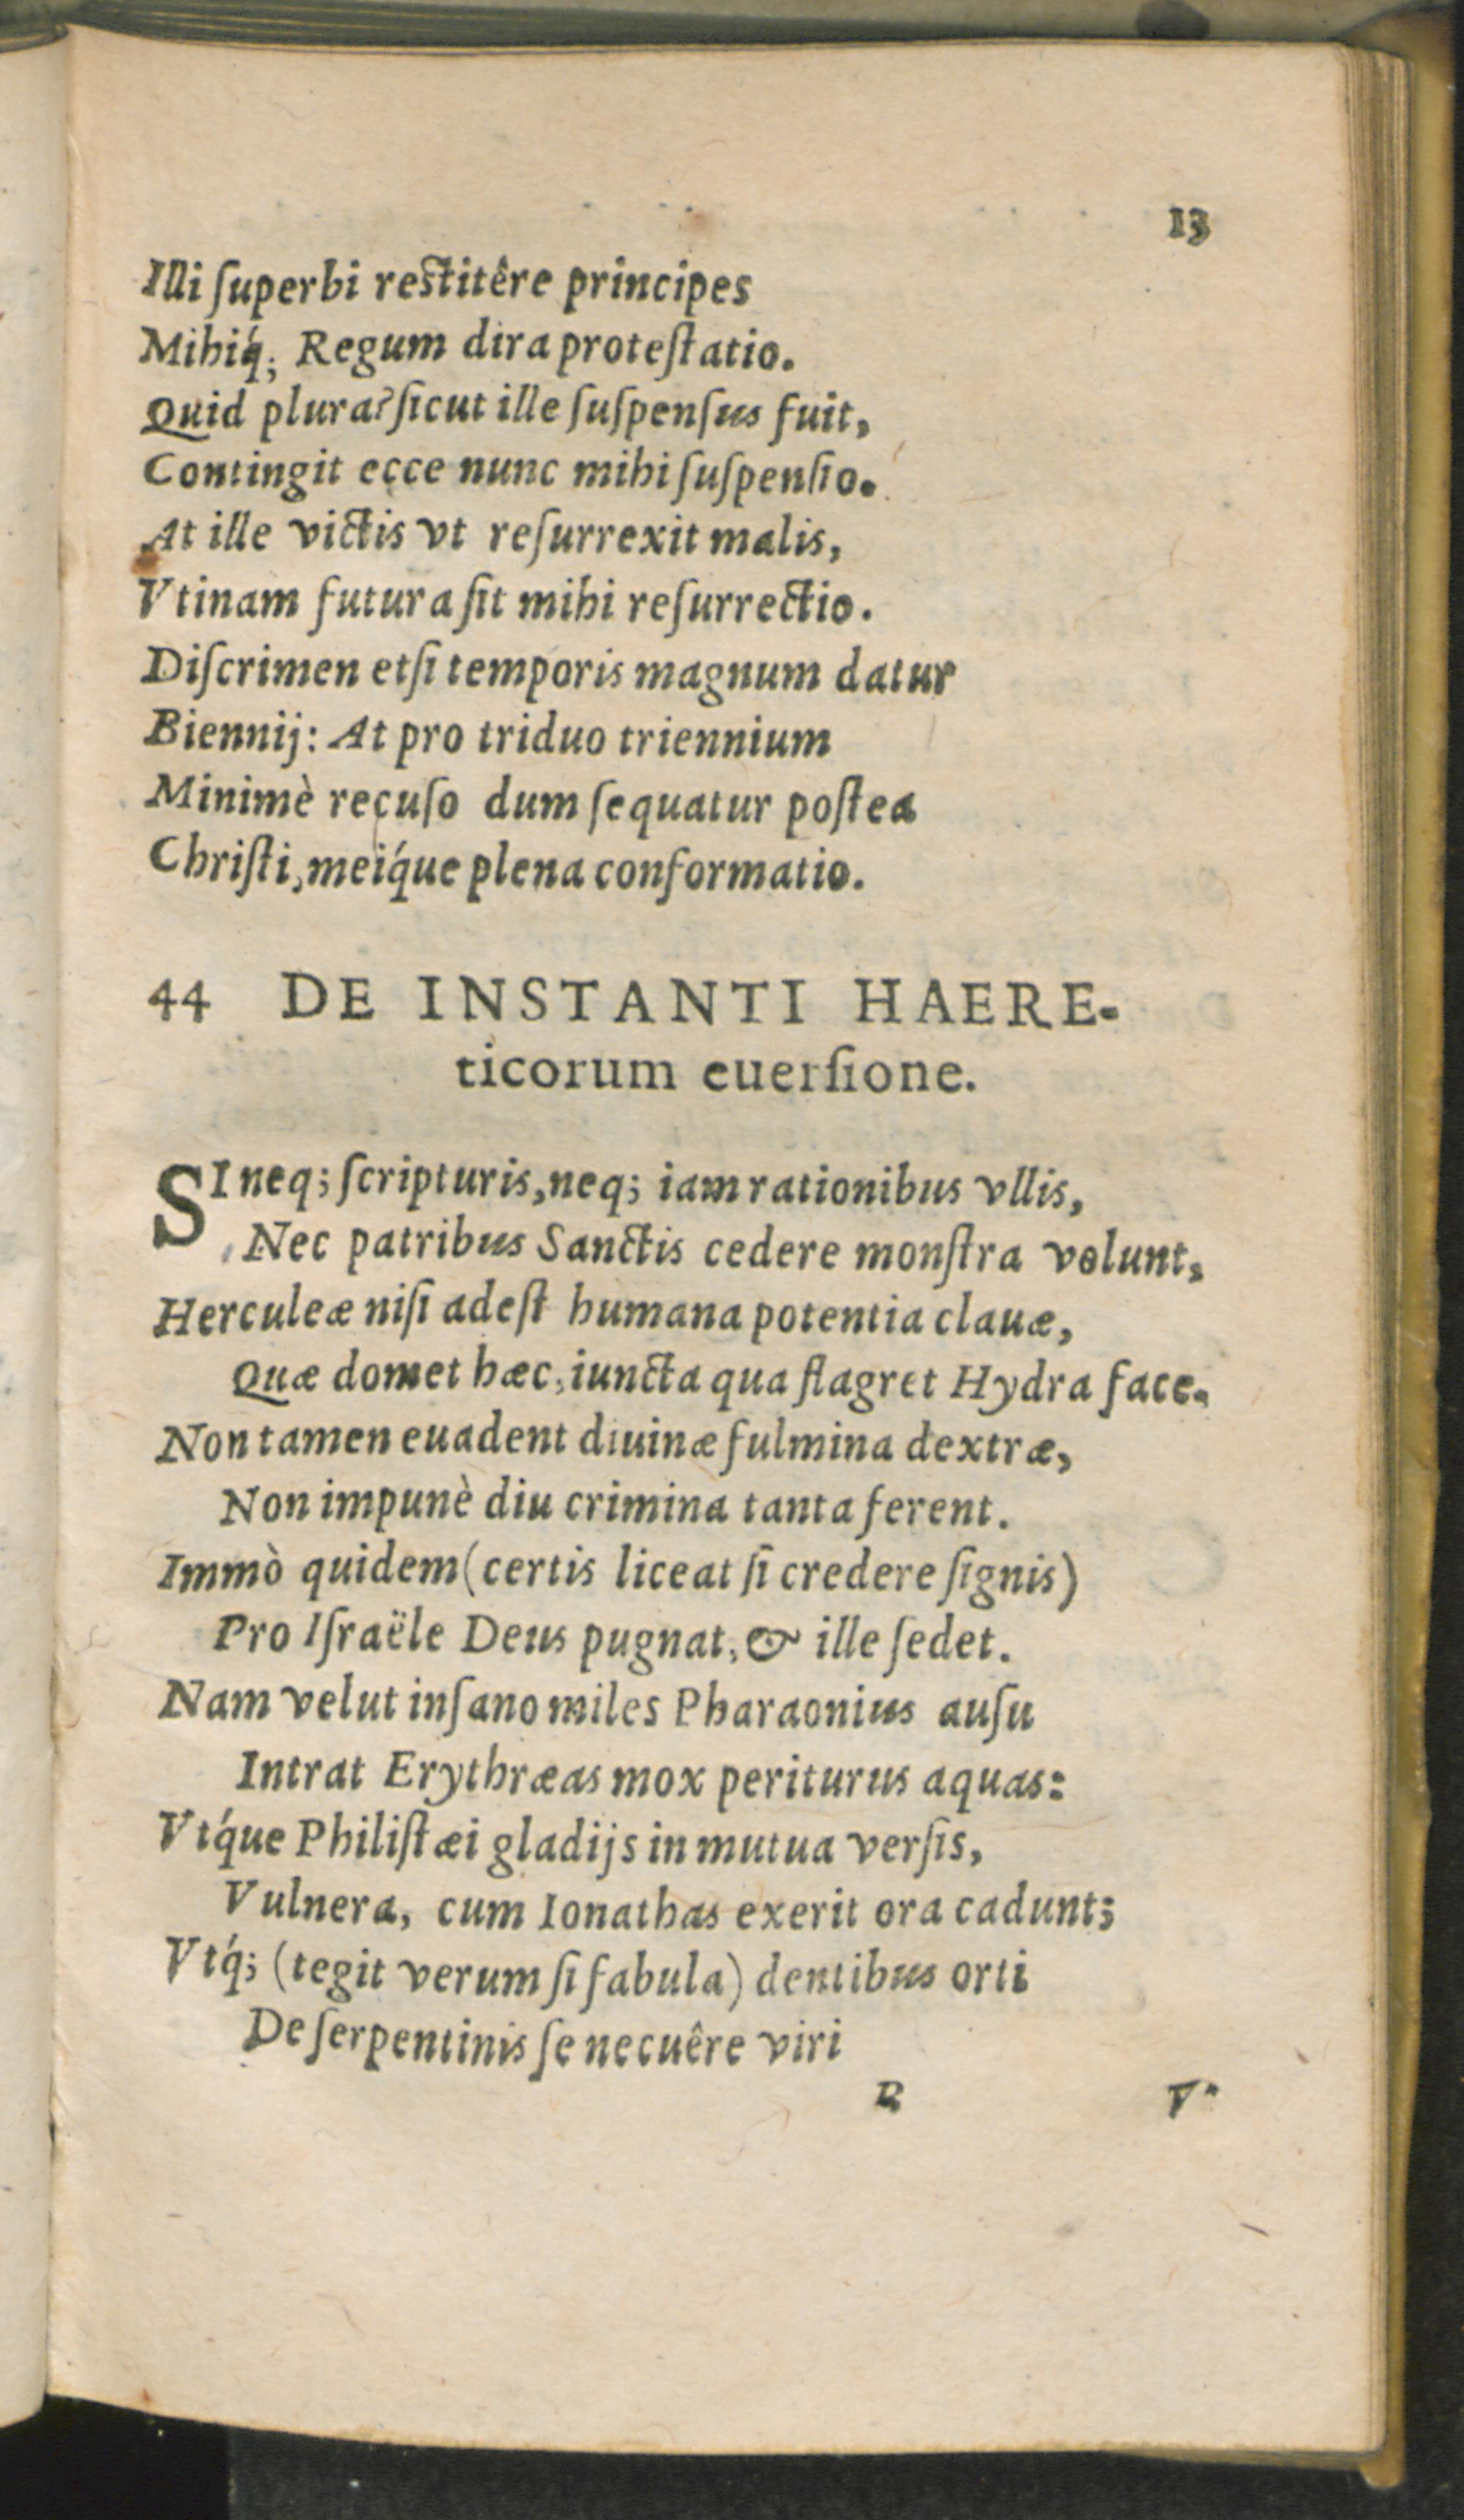 13
Illi ſuperbi reſtitêre principes
Mihiq́; Regum dira proteſtatio.
Quid plura? ſicut ille ſuſpenſus fuit,
Contingit ecce nunc mihi ſuſpenſio.
At ille victis vt reſurrexit malis,
Vtinam futura ſit mihi reſurrectio.
Diſcrimen etſi temporis magnum datur
Biennij: At pro triduo triennium
Minimè recuſo dum ſequatur poſtea
Chriſti, meiq́ue plena conformatio.
44 DE INSTANTI HAERE-
ticorum euerſione.
SI neq; ſcripturis, neq; iam rationibus vllis,
Nec patribus Sanctis cedere monſtra volunt,
Herculeæ niſi adeſt humana potentia clauæ,
Quæ domet hæc, iuncta qua flagret Hydra face.
Non tamen euadent diuinæ fulmina dextræ,
Non impunè diu crimina tanta ferent.
Immò quidem (certis liceat ſi credere ſignis)
Pro Iſraële Deus pugnat, & ille ſedet.
Nam velut inſano miles Pharaonius auſu
Intrat Erythræas mox periturus aquas:
Vtq́ue Philiſtæi gladijs in mutua verſis,
Vulnera, cum Ionathas exerit ora cadunt;
Vtq́; (tegit verum ſi fabula) dentibus orti
De ſerpentinis ſe necuêre viri